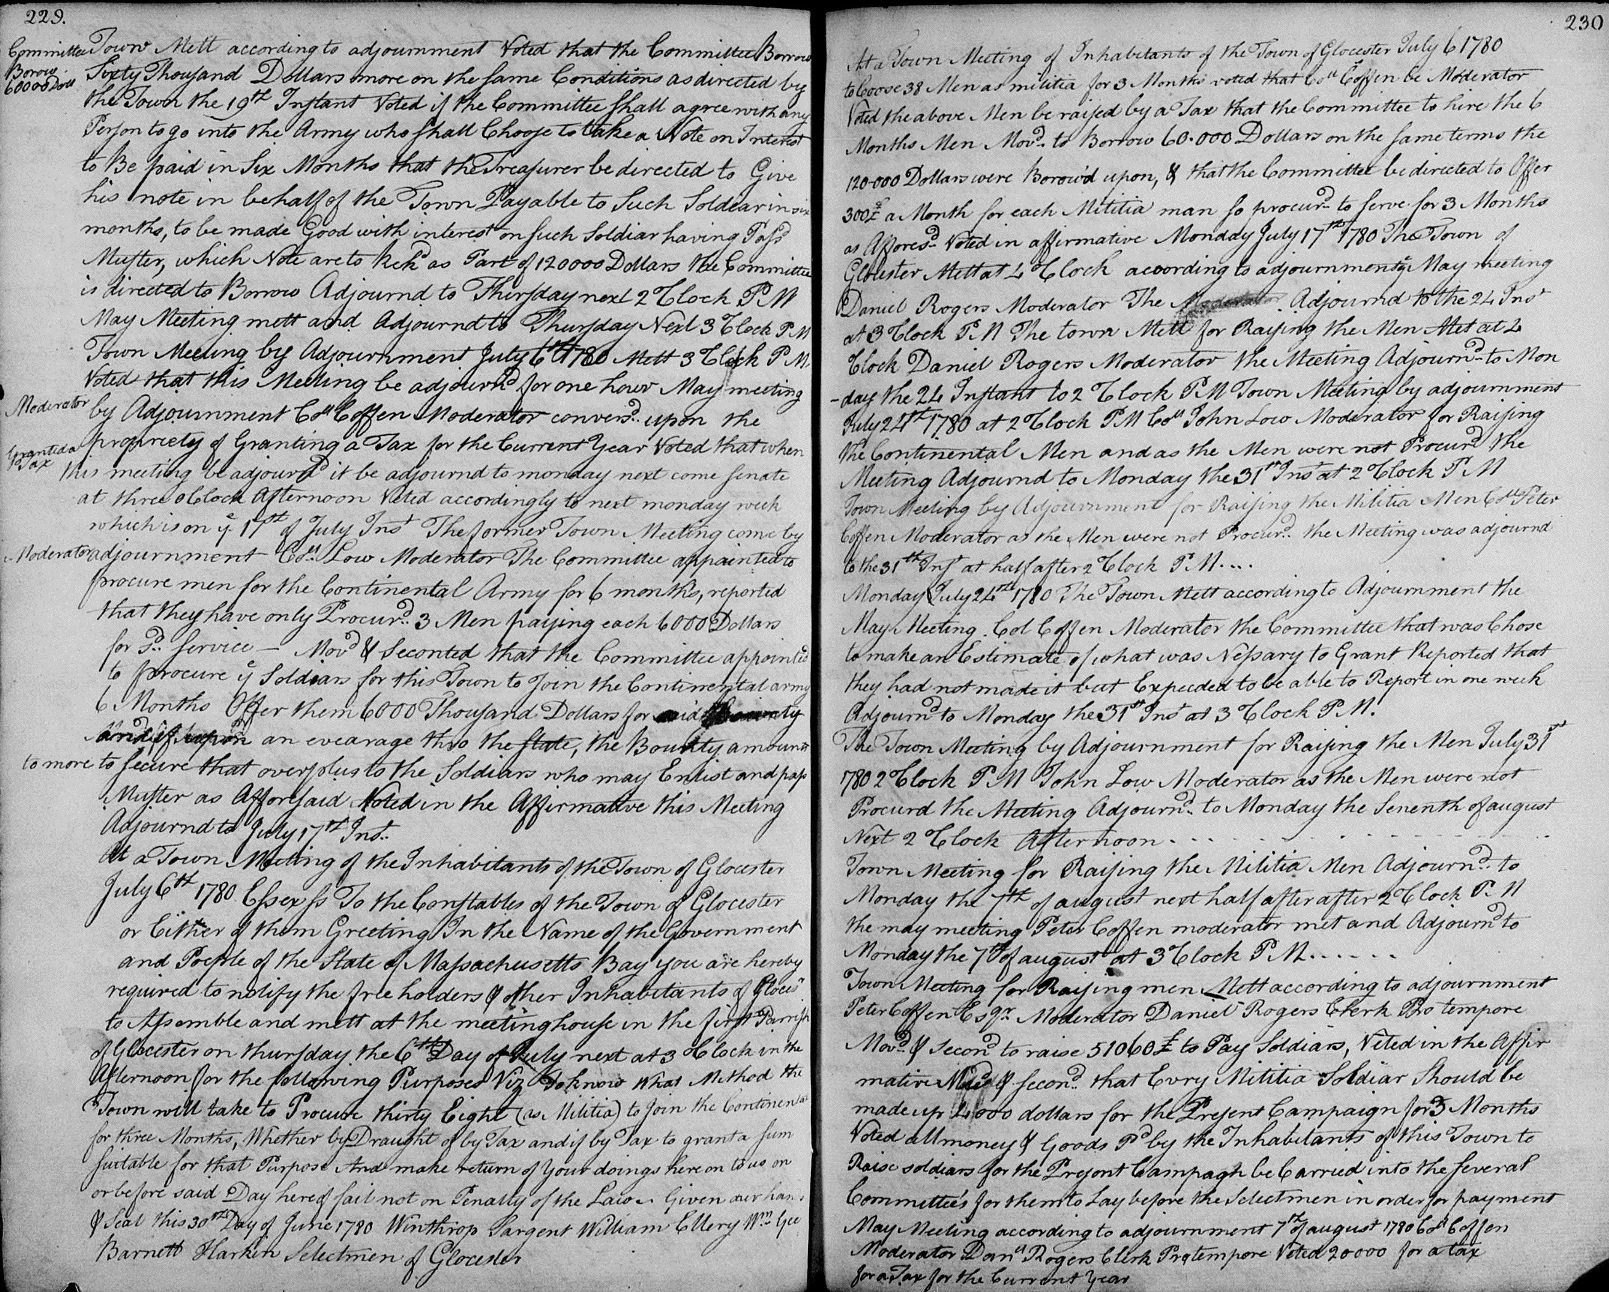 229.
Committee Borow 60000 Doll
Town Mett according to adjournment Voted that the Committee Borrow
Sixty Thousand Dollars more on the same Conditions as directed by
the Town the 19th Instant Voted if the Committee shall agree with any
Person to go into the Army who shall Choose to take a Note on Interest
to Be paid in Six Months that the Treasurer be directed to Give
his note in behalf of the Town Payable to Such Soldear in six
months, to be made Good with interest on such Soldiar having Pass'd
Muster, which Note are to Rekd as Part of 120000 Dollars the Committee
is directed to Borrow Adjournd to Thursday next 2 Clock P M
May Meeting mett and Adjournd to Thursday Next 3 Clock P M
Town Meeting by Adjournment July 6th 1780 Mett 3 Clock P M.
Voted that this Meeting be adjournd for one hour May meeting
Moderator
by Adjournment Coll Coffen Moderator convers'd upon the
Granted a Tax
propriety of Granting a Tax for the Current Year Voted that when
this meeting be adjournd it be adjournd to monday next come senate
at three oClock Afternoon Voted accordingly to next monday week
which is on ye 17th of July Inst The former Town Meeting come by
Moderator
adjournment Coll Low Moderator The Committee appointed to
procure men for the Continental Army for 6 months, reported
that they have only Procur'd 3 Men paying each 6000 Dollars
for sd Service — Mov'd & Seconted that the Committee appointed
to procure ye Soldears for this Town to Join the Continental army
6 Months Offer them 6000 Thousand Dollars for said Bounty
and if upon an evearage thro the state, the Bounty amounts
to more to secure that overplus to the Soldiars who may Enlist and pass
Muster as Afforesaid Voted in the Affirmative this Meeting
Adjournd to July 17th Inst.
At a Town Meeting of the Inhabitants of the Town of Glocester
July 6th 1780 Essex ss To the Constables of the Town of Glocester
or Either of them Greeting In the Name of the Government
and People of the State of Massachusetts Bay you are hereby
required to notify the free holders & other Inhabitants of Glocesr
to Assemble and mett at the meetinghouse in the first Parrish
of Glocester on thursday the 6th Day of July next at 3 oClock in the
Afternoon for the following Purposes Viz To know What Method the
Town will take to Procure thirty Eight (as Militia) to Join the Continen
for three Months, Whether by Draught or by Tax and if by Tax to grant a sum
suitable for that Purpose And make return of Your doings here on to us on
or before said Day hereof fail not on Penalty of the Law. Given our hand
& Seal this 30th Day of June 1780 Winthrop Sargent William Ellery Wm Gee
Barnett Harkin Selectmen of Glocester
230
At a Town Meeting of Inhabitants of the Town of Glocester July 6 1780
to Coose 38 Men as militia for 3 Months voted that Coll Coffen be Moderator
Voted the above Men be raised by a Tax that the Committee to hire the 6
Months Men Mov'd to Borrow 60.000 Dollars on the same terms the
120.000 Dollars were Borow'd upon, & that the Committee be directed to Offer
300£ a Month for each Mititia man so procur'd to serve for 3 Months
as Affores'd Voted in affirmative Monday July 17th 1780 The Town of
Glocester Mett at 4 oClock according to adjournment ye May meeting
Daniel Rogers Moderator The Moderator Adjournd to the 24 Inst
at 3 Clock P. M The town Mett for Raising the Men Met at 4
Clock Daniel Rogers Moderator the Meeting Adjourn'd to Mon
-day the 24 Instant to 2 Clock P M Town Meeting by adjournment
July 24th 1780 at 2 Clock P M Coll John Low Moderator for Raising
the Continental Men and as the Men were not Procur'd the
Meeting Adjournd to Monday the 31st Inst at 2 Clock P M
Town Meeting by Adjournment for Raising the Militia Men Coll Peter
Coffen Moderator as the Men were not Procur'd the Meeting was adjournd
to the 31st Inst at half after 2 Clock P. M....
Monday July 24th 1780 The Town Mett according to Adjournment the
May Meeting Col Coffen Moderator the Committee that was Chose
to make an Estimate of what was Nessary to Grant Reported that
they had not made it but Expeeded to be able to Report in one week
Adjourn'd to Monday the 31st Inst at 3 Clock P M.
The Town Meeting by Adjournment for Raising the Men July 31st
780 2 Clock P M John Low Moderator as the Men were not
Procurd the Meeting Adjourn'd to Monday the Seventh of august
Next 2 Clock Afternoon
Town Meeting for Raising the Militia Men Adjourn'd to
Monday the 7th of august next half after after 2 Clock P M
the may meeting Peter Coffen moderator met and Adjournd to
Monday the 7th of august at 3 Clock P M......
Town Meeting for Raising men Mett according to adjournment
Peter Coffen Esqr Moderator Daniel Rogers Clerk Pro tempore
Mov'd & Second to raise 51060£ to Pay Soldiars, Voted in the Affir
mative Mov'd & Second that Evry Mititia Soldiar Should be
made up 4000 dollars for the Present Campaign for 3 Months
Voted all money & Goods Pd by the Inhabitants of this Town to
Raise soldiars for the Present Campagn be Carried into the several
Committee's for them to Lay before the Selectmen in order for payment
May Meeting according to adjournment 7th of august 1780 Coll Coffen
Moderator Danll Rogers Clerk Protempore Voted 20000 for a tax
for a Tax for the Current Year